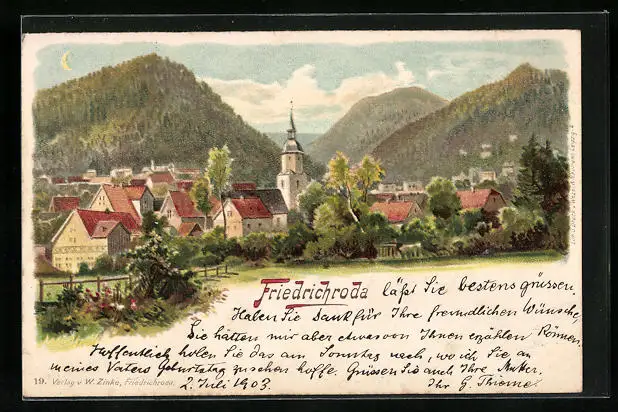 Friedrichroda läßt Sie bestens grüssen.
Haben Sie Dank für Ihre freundlichen Wünsche,
Sie hätten mir aber etwas von Ihnen erzählen können.
Hoffentlich holen Sie das am Sonntag nach, wo ich Sie an
meines Vaters Geburtstag zu sehen hoffe. Grüssen Sie auch Ihre Mutter.
2. Juli 1903. Ihr G. Thieme
19. Verlag v. W. Zinke, Friedrichroda.